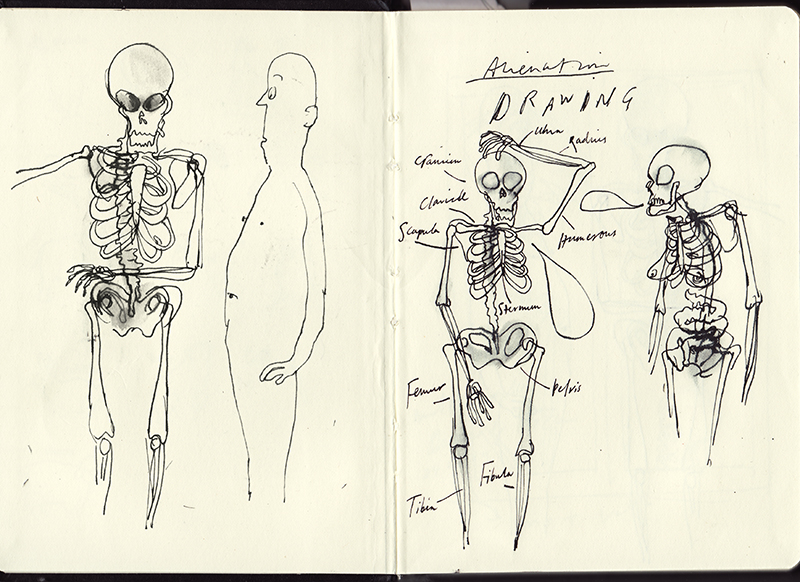 Alienation
DRAWING
Ulna
Radius
Cranium
Clavicle
Scapula
Humerous
Sternum
Pelvis
Femur
Fibula
Tibia